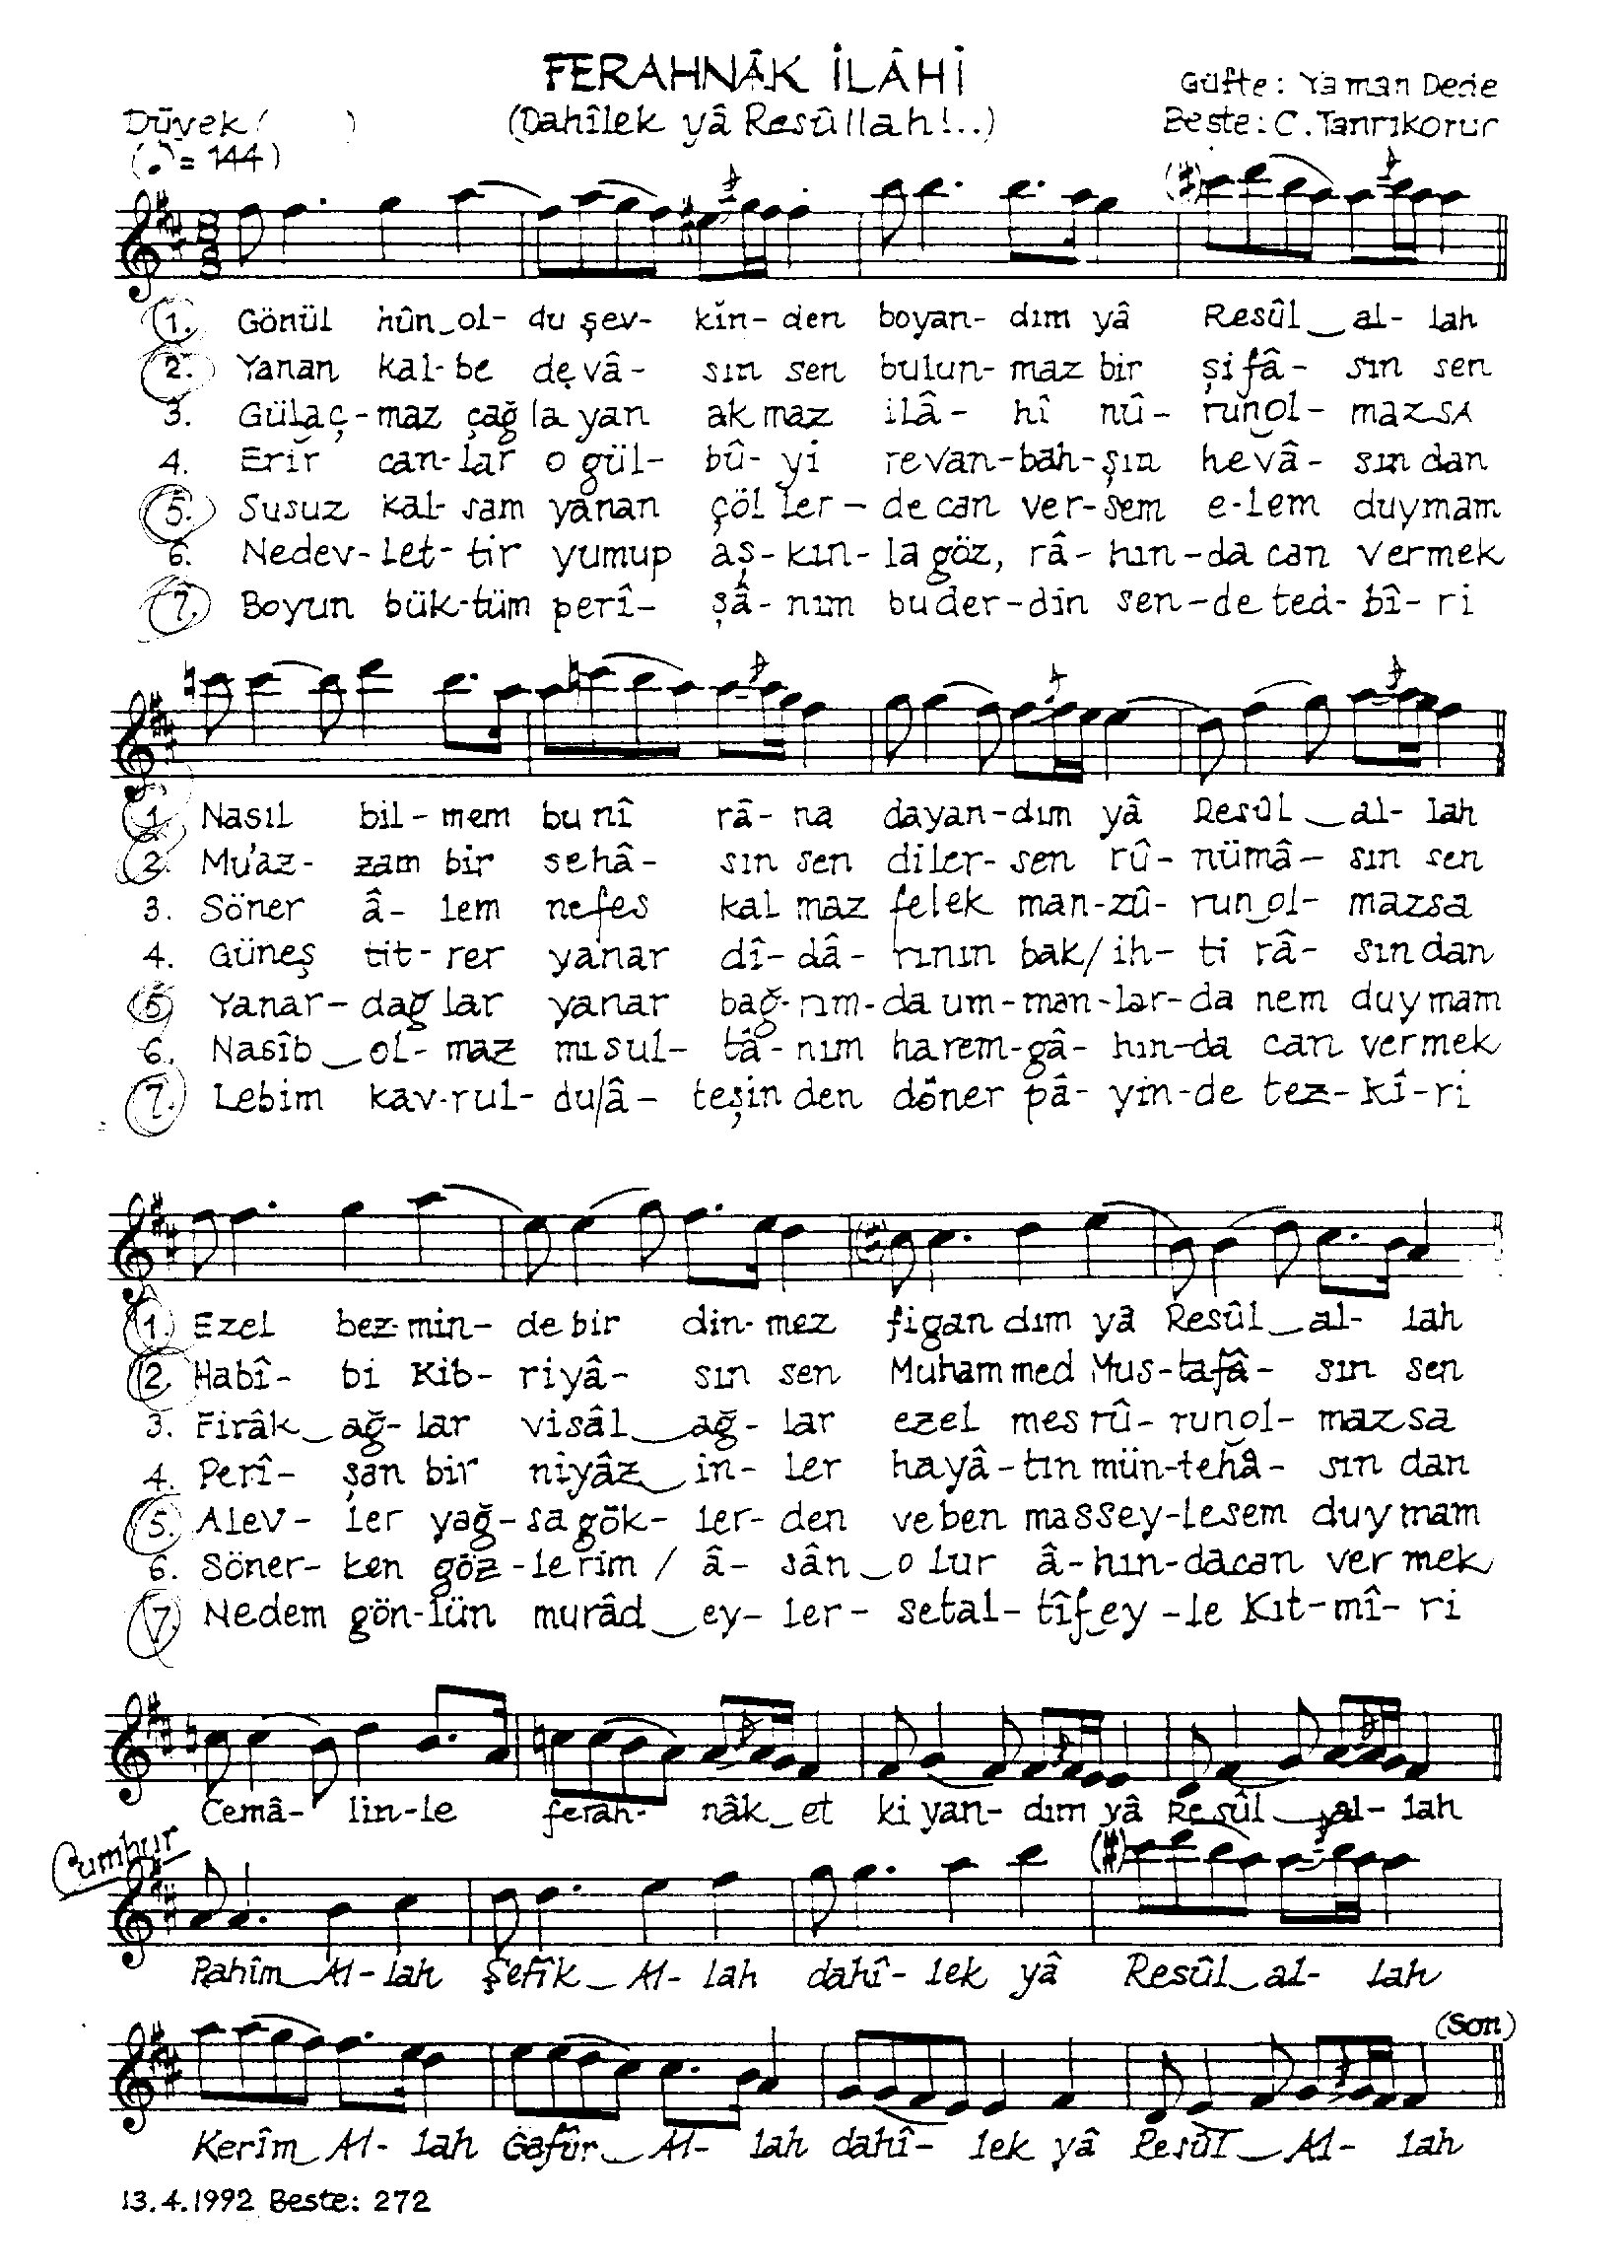 FERAHNÂK İLÂHİ
(Dahîlek yâ Resûllah!..)
Güfte: Yaman Dede
Beste: C. Tanrıkorur
Düyek ( )
(♪ = 144)
1. Gönül hûn_ol- du şev- kin- den boyan- dım yâ Resûl_al- lah
2. Yanan kal- be devâ- sın sen bulun- maz bir şifâ- sın sen
3. Gülaç- maz çağlayan akmaz ilâ- hî nû- runol- mazsa
4. Erir can- lar o gül- bû- yi revan- bah- şın hevâ- sından
5. Susuz kal- sam yanan çöller- de can ver- sem e- lem duymam
6. Nedev- let- tir yumup aş- kın- la göz, râ- hın- da can vermek
7. Boyun bük- tüm perî- şâ- nım bu der- din sen- de ted- bî- ri
1. Nasıl bil- mem bu nî râ- na dayan- dım yâ Resûl_al- lah
2. Mu'az- zam bir sehâ- sın sen diler- sen rû- nümâ- sın sen
3. Söner â- lem nefes kalmaz felek man- zû- run_ol- mazsa
4. Güneş tit- rer yanar dî- dâ- rının bak/ ih- ti râ- sından
5. Yanar- dağlar yanar bağ- rım- da um- man- lar- da nem duymam
6. Nasîb_ol- maz mı sul- tâ- nım harem- gâ- hın- da can vermek
7. Lebim kav- rul- du/â- teşinden döner pâ- yin- de tez- kî- ri
1. Ezel bez- min- de bir din- mez figandım yâ Resûl_al- lah
2. Habî- bi Kib- riyâ- sın sen Muhammed Mus- tafâ- sın sen
3. Firâk_ağ- lar visâl_ağ- lar ezel mesrû- runol- mazsa
4. Perî- şan bir niyâz_in- ler hayâ- tın mün- tehâ- sından
5. Alev- ler yağ- sa gök- ler- den ve ben massey- lesem duymam
6. Söner- ken göz- lerim / â- sân_olur â- hın- da can vermek
7. Nedem gön- lün murâd_ey- ler- se tal- tîf_ey- le Kıt- mî- ri
Cemâ- lin- le ferah- nâk_et ki yan- dım yâ Resûl_al- lah
Cumhur
Rahîm_Al- lah Şefîk_Al- lah dahî- lek yâ Resûl_al- lah
(Son)
Kerîm_Al- lah Gafûr_Al- lah dahî- lek yâ Resûl_Al- lah
13.4.1992 Beste: 272